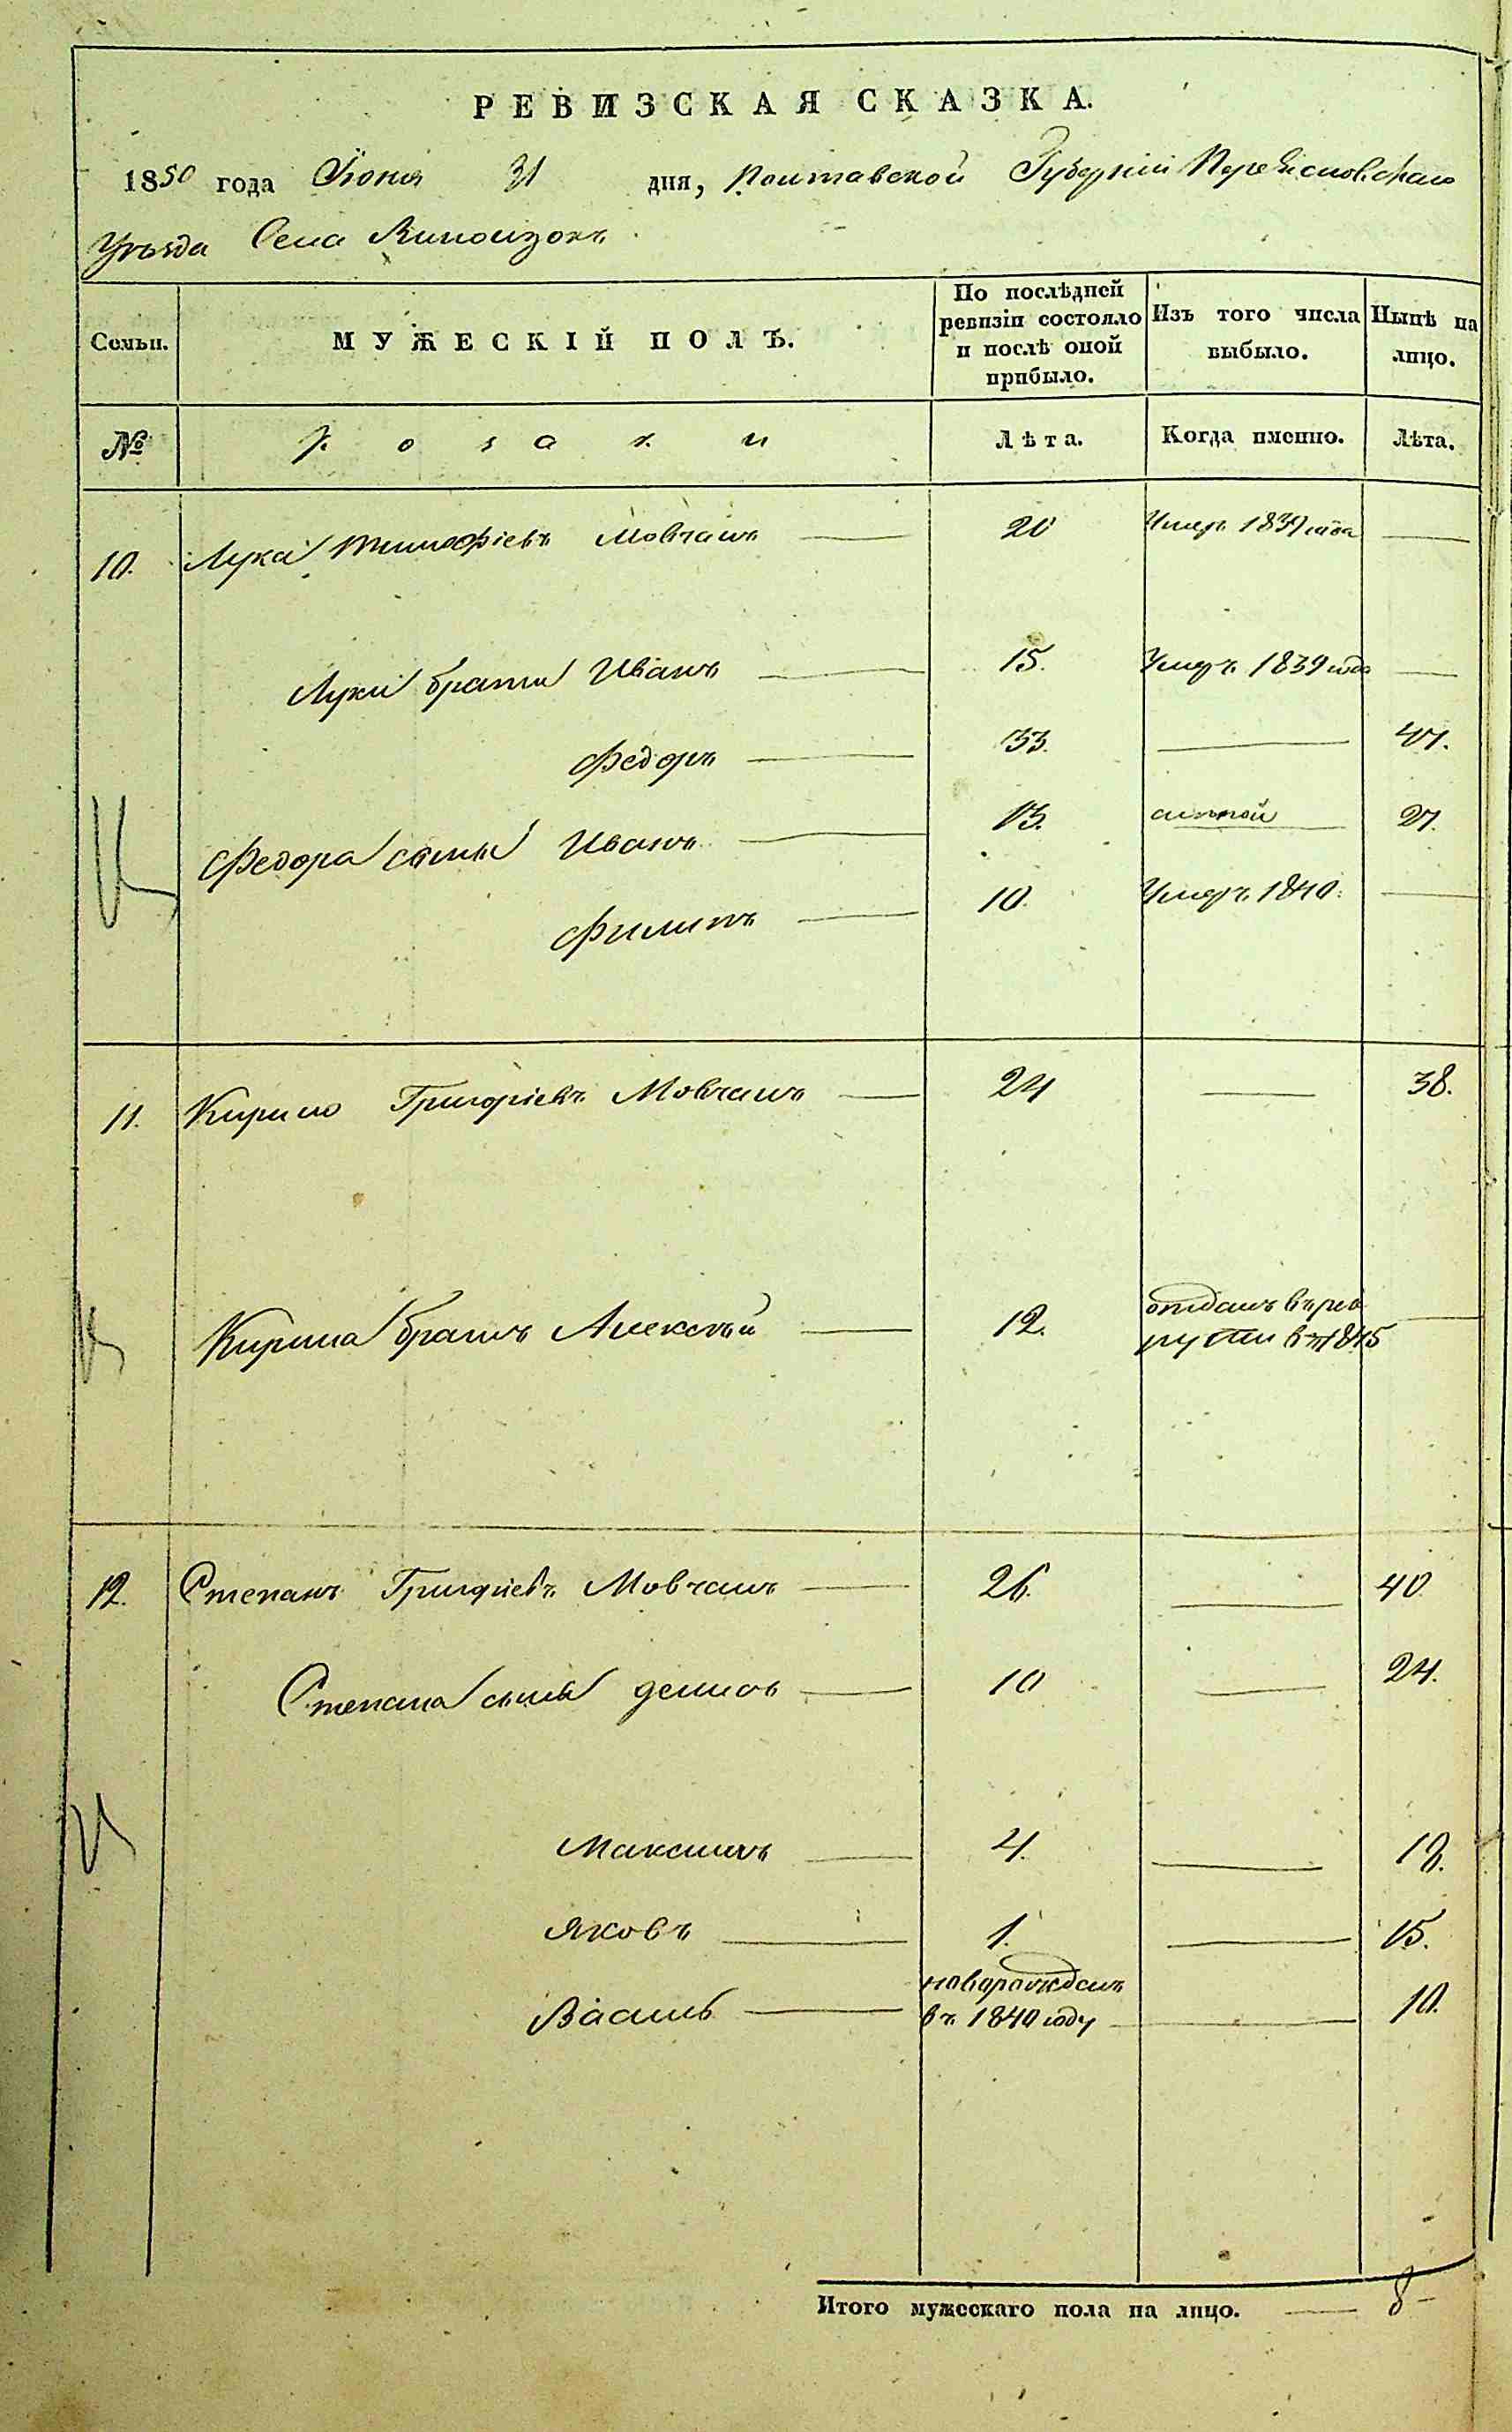 РЕВИЗСКАЯ СКАЗКА.
1850 года Іюня 31 дня, Полтавской Губерніи Переясловскаго
Уѣзда Села Виползокъ
Семьи.
МУЖЕСКІЙ ПОЛЪ.
По послѣдней ревизіи состояло и послѣ оной прибыло.
Изъ того числа выбыло.
Нынѣ на лицо.
№ козаки Лѣта. Когда именно. Лѣта.
10. Лука Тимофіевъ Мовчанъ 20 Умеръ 1839 года
Луки братья Иванъ 15. Умеръ 1839 года
Федоръ 33. 47.
Федора сыны Иванъ 13. 27.
Филипъ 10. Умеръ 1840.
11. Кирило Григоріевъ Мовчанъ 24 38.
Кирила братъ Алексѣй 12. отданъ въ рек
руты въ 1845
12. Степанъ Григоріевъ Мовчанъ 26. 40
Степана сыны Демидъ 10 24.
Максимъ 4. 18.
Яковъ 1. 15.
Василь новорожденъ
въ 1840 году 10.
Итого мужескаго пола на лицо. 8